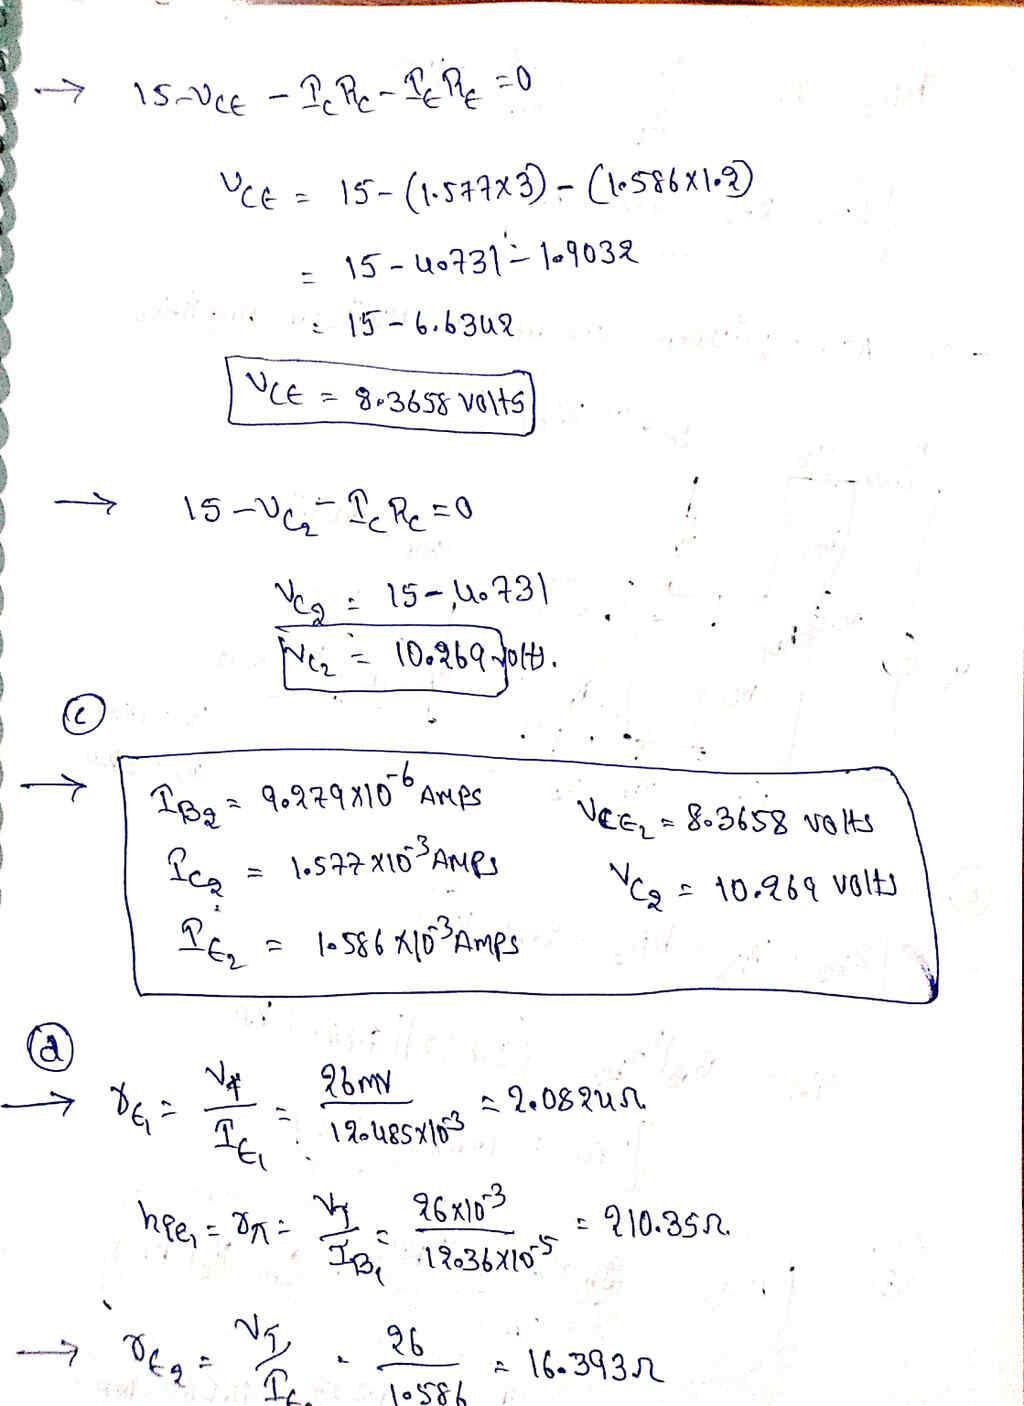 → 15-VCE - ICRC - IERE = 0
VCE = 15-(1.577x3) - (1.586x1.2)
= 15-4.731 - 1.9032
= 15-6.6342
VCE = 8.3658 volts
→ 15-VC2 - ICRC = 0
VC2 = 15-4.731
VC2 = 10.269 volts.
(c)
→ IB2 = 9.279x10^-6 AMPS VCE2 = 8.3658 volts
IC2 = 1.577x10^-3 AMPS VC2 = 10.269 volts
IE2 = 1.586x10^-3 AMPS
(d)
→ rE1 = VT/IE1 = 26mV/12.485x10^-3 = 2.0824Ω
hie1 = rπ = VT/IB1 = 26x10^-3/12.36x10^-5 = 210.35Ω
→ rE2 = VT/IE2 = 26/1.586 = 16.393Ω